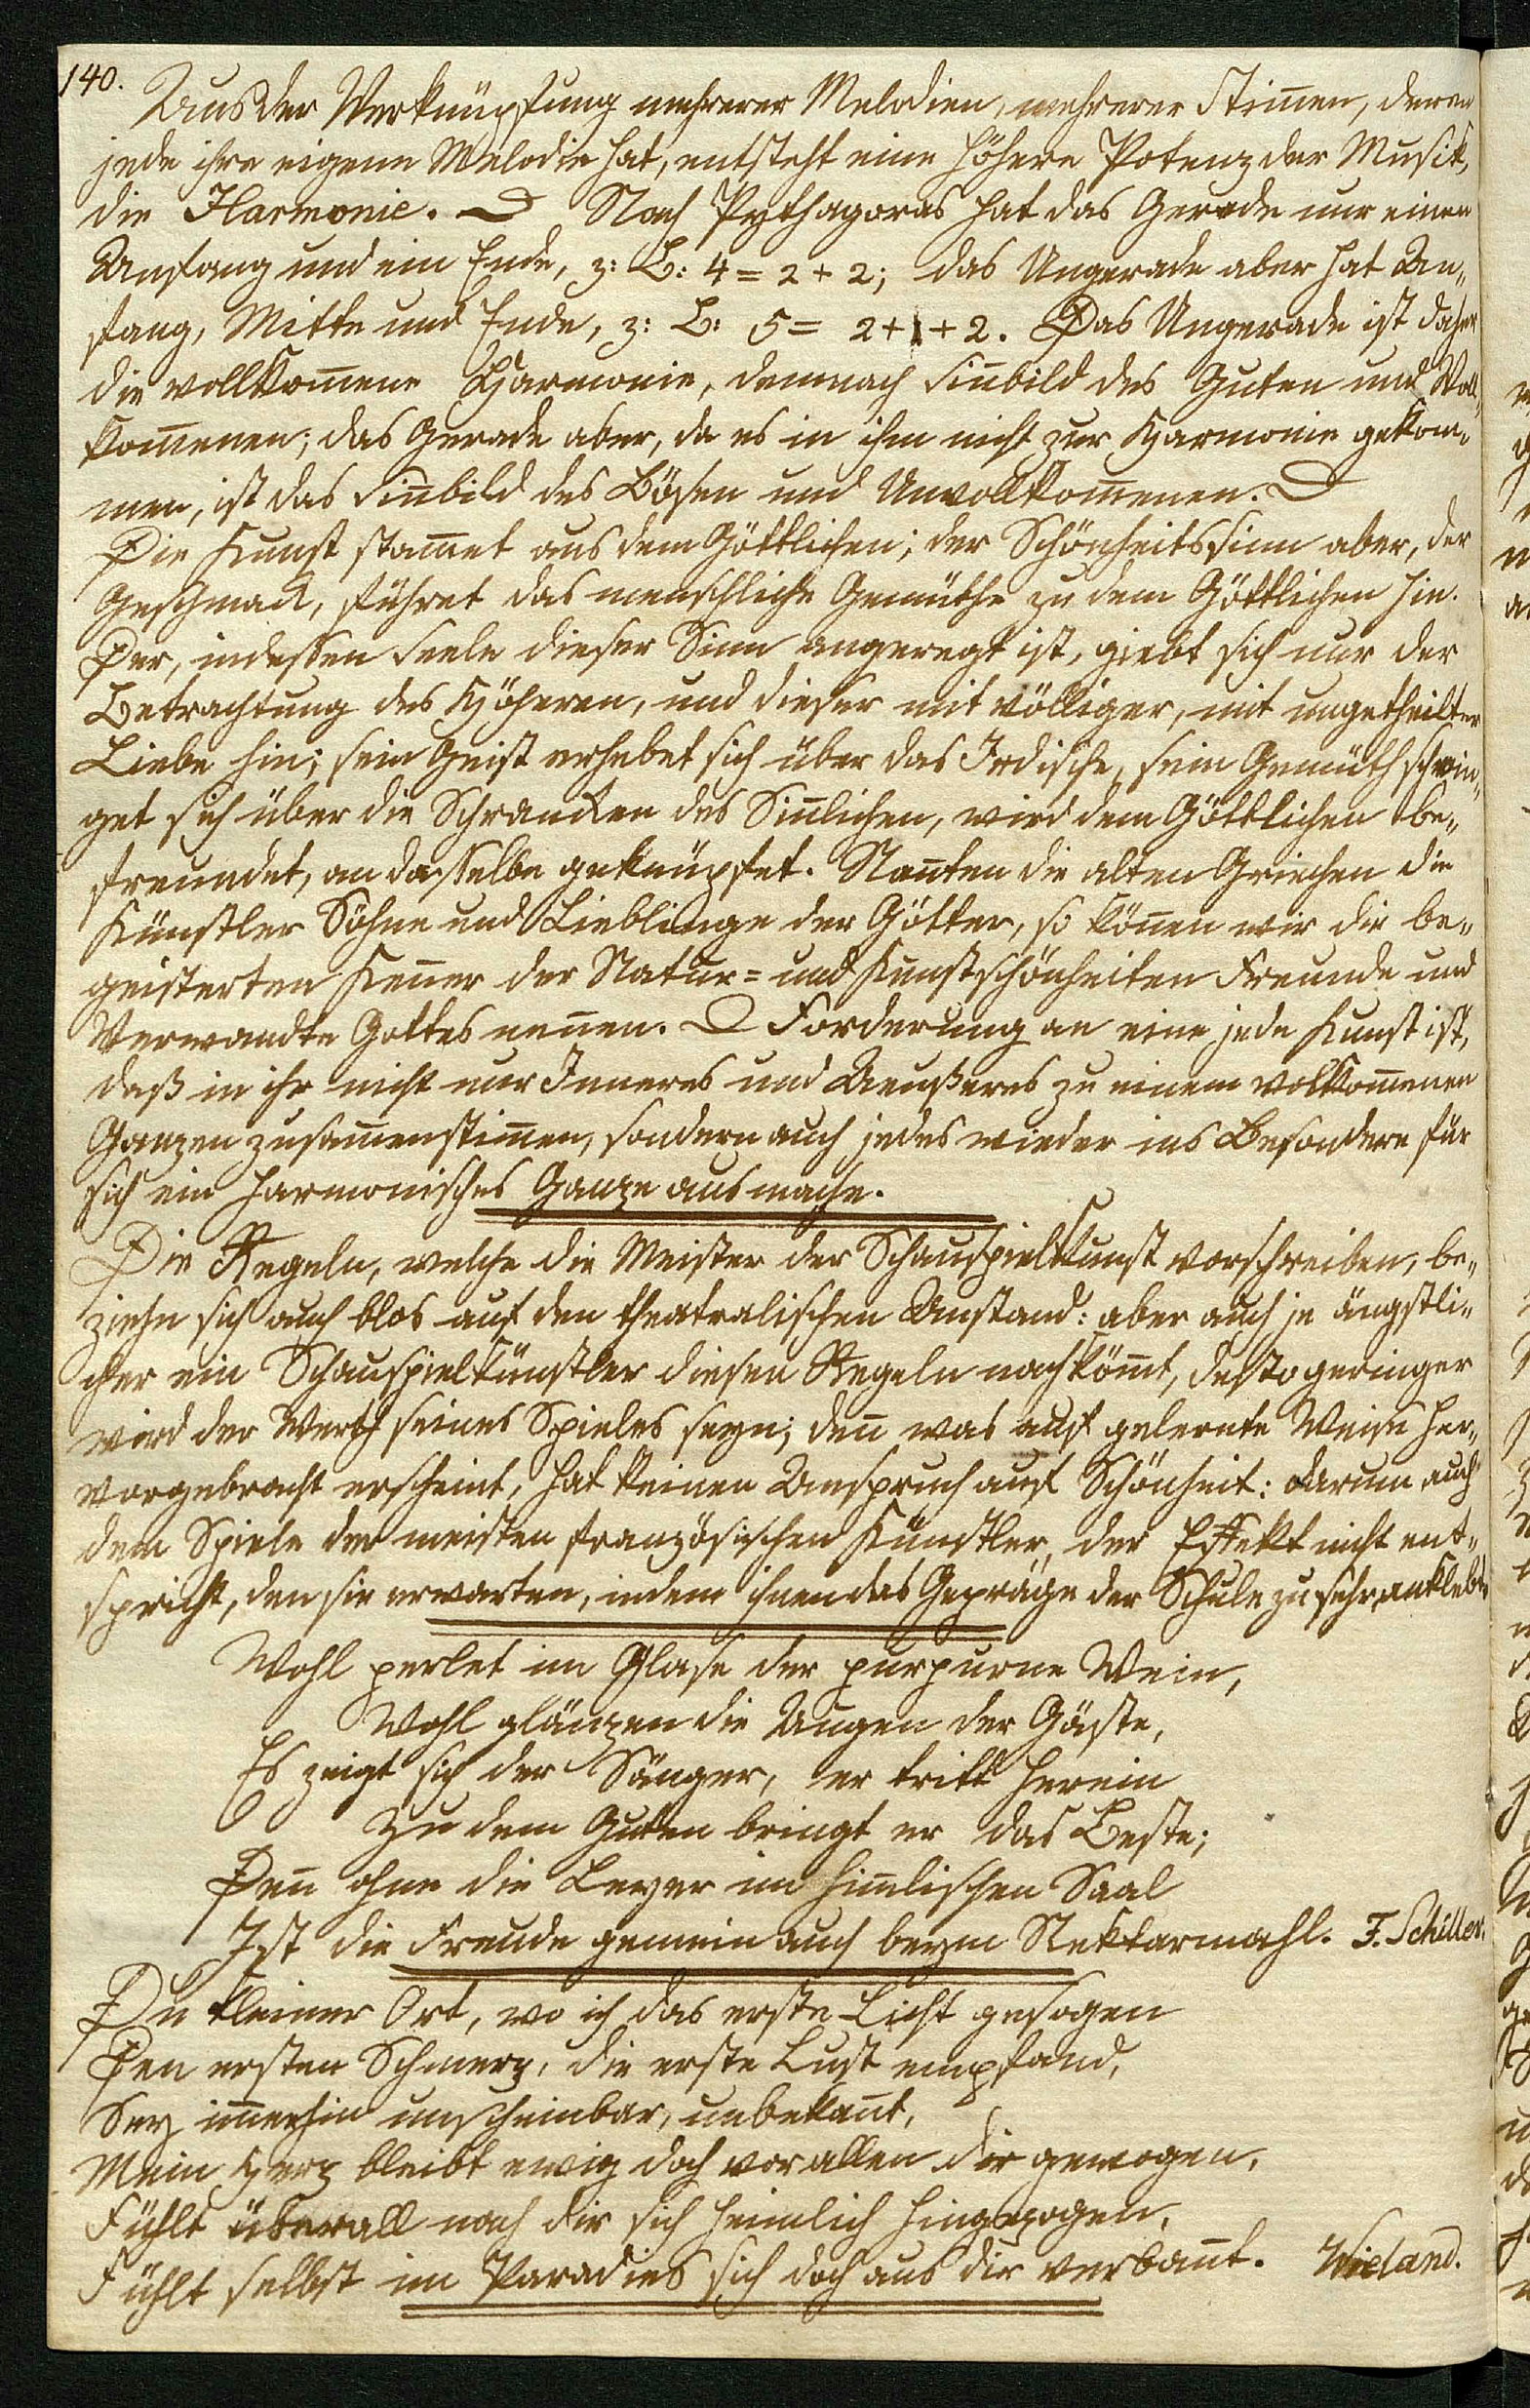 140.
Aus der Verknüpfung mehrerer Melodien, mehrerer Stim̅en, deren
jede ihre eigene Melodie hat, entsteht eine höhere Potenz der Musik,
die Harmonie. — Nach Pythagoras hat das Gerade nur einen
Anfang und ein Ende, z: B: 4 = 2 + 2; das Ungerade aber hat An„
fang, Mitte und Ende, z: B: 5 = 2 + 1 + 2. Das Ungerade ist daher
die vollkom̅ene Harmonie, demnach Sin̅bild des Guten und Voll„
kom̅enen; das Gerade aber, da es in ihm nicht zur Harmonie gekom„
men, ist das Sin̅bild des Bösen und Unvollkom̅enen. —
Die Kunst stam̅et aus dem Göttlichen; der Schönheitssinn aber, der
Geschmack, führet das menschliche Gemüthe zu dem Göttlichen hin.
Der, indessen Seele dieser Sinn angeregt ist, giebt sich nur der
Betrachtung des Höheren, und dieser mit völliger, mit ungetheilter
Liebe hin; sein Geist erhebet sich über das Irdische, sein Gemüth schwin„
get sich über die Schrancken des Sin̅lichen, wird dem Göttlichen be„
freundet, an dasselbe geknüpfet. Nan̅ten die alten Griechen die
Künstler Söhne und Lieblinge der Götter, so kön̅en wir die be„
geisterten Ken̅er der Natur= und Kunstschönheiten Freunde und
Verwandte Gottes nen̅en. — Forderung an eine jede Kunst ist,
daß in ihr nicht nur Inneres und Aeußeres zu einem vollkom̅enen
Ganzen zusam̅enstim̅en, sondern auch jedes wieder ins Besondere für
sich ein harmonisches Ganze ausmache.
Die Regeln, welche die Meister der Schauspielkunst vorschreiben, be„
ziehn sich auch blos auf den theatralischen Anstand: aber auch je ängstli„
cher ein Schauspielkünstler diesen Regeln nachköm̅t, desto geringer
wird der Werth seines Spieles seyn; den̅ was auf gelernte Weise her„
vorgebracht erscheint, hat keinen Anspruch auf Schönheit: darum auch
dem Spiele der meisten französischen Künstler, der Effekt nicht ent„
spricht, den sie erwarten, indem ihnen das Gepräge der Schule zu sehr anklebt.
Wohl perlet im Glase der purpurne Wein,
Wohl glänzen die Augen der Gäste,
Es zeigt sich der Sänger, er tritt herein
Zu dem Guten bringt er das Beste;
Den̅ ohne die Leyer im him̅lischen Saal
Ist die Freude gemein auch beym Nektarmahl. F. Schiller.
Du kleiner Ort, wo ich das erste Licht gesogen
Den ersten Schmerz, die erste Lust empfand,
Sey im̅erhin unscheinbar, unbekan̅t,
Mein Herz bleibt ewig doch vor allen dir gewogen,
Fühlt überall nach dir sich heimlich hingezogen,
Fühlt selbst im Paradies sich doch aus dir verban̅t. Wieland.